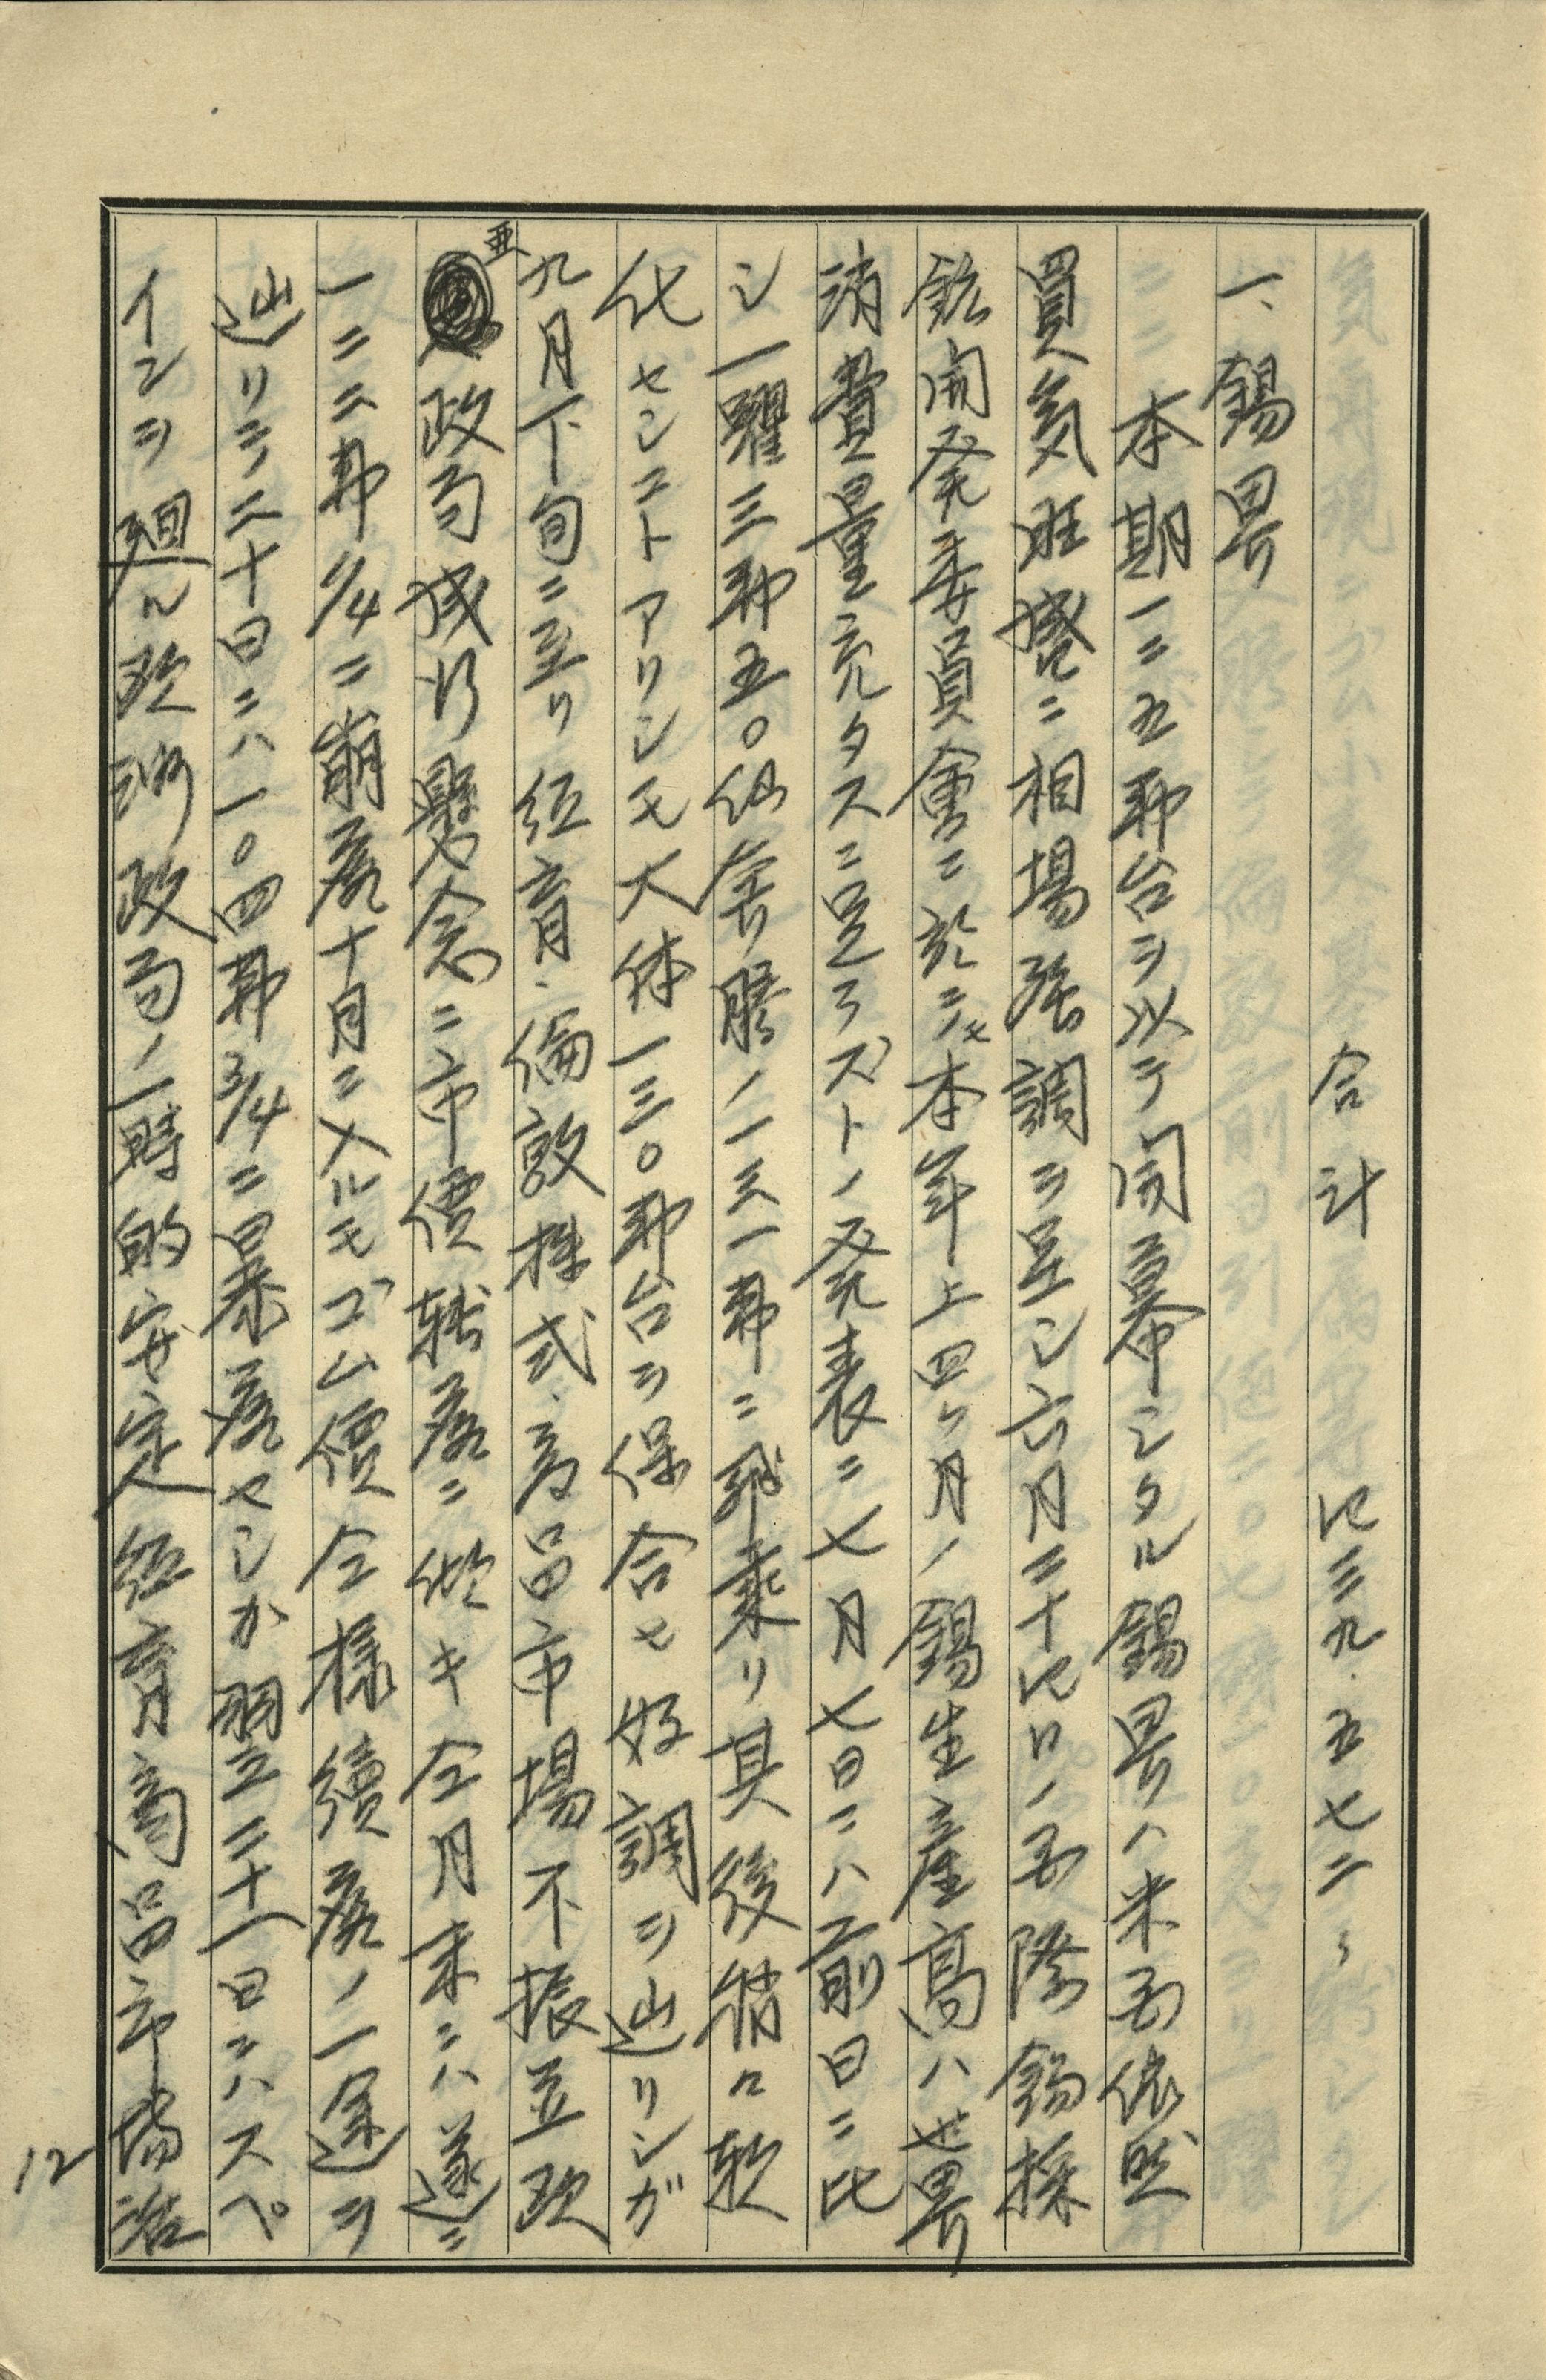 合計 ㌣三九.五七二〻
一、錫界
本期一二五弗台ヲ以テ開幕シタル錫界ハ米国依然
買気旺盛ニ相場強調ヲ呈シ六月三十㌣日ノ国際錫採
鉱開発委員會ニ於ニモ本年上四ヶ月ノ錫生産高ハ世界
消費量充タスニ足ラズトノ発表ニ七月七日ニハ前日ニ比
シ一躍三弗五〇仙奔騰ノ一三一弗ニ飛乗リ其後稍々軟
化センコトアリシモ大体一三〇弗台ヲ保合セ好調ヲ辿リシガ
九月下旬ニ至リ紐育、倫敦株式、商品市場不振並欧
亜政局成行懸念ニ市價軟落ニ傾キ仝月末ニハ遂ニ
一二二弗1/4ニ崩落十月ニ入ルモゴム價仝様續落ノ一途ヲ
辿リテ二十日ニハ一〇四弗3/4ニ暴落セシカ翌二十一日ニハスペ
インヲ廻ル欧洲政局ノ一時的安定紐育商品市場活
12